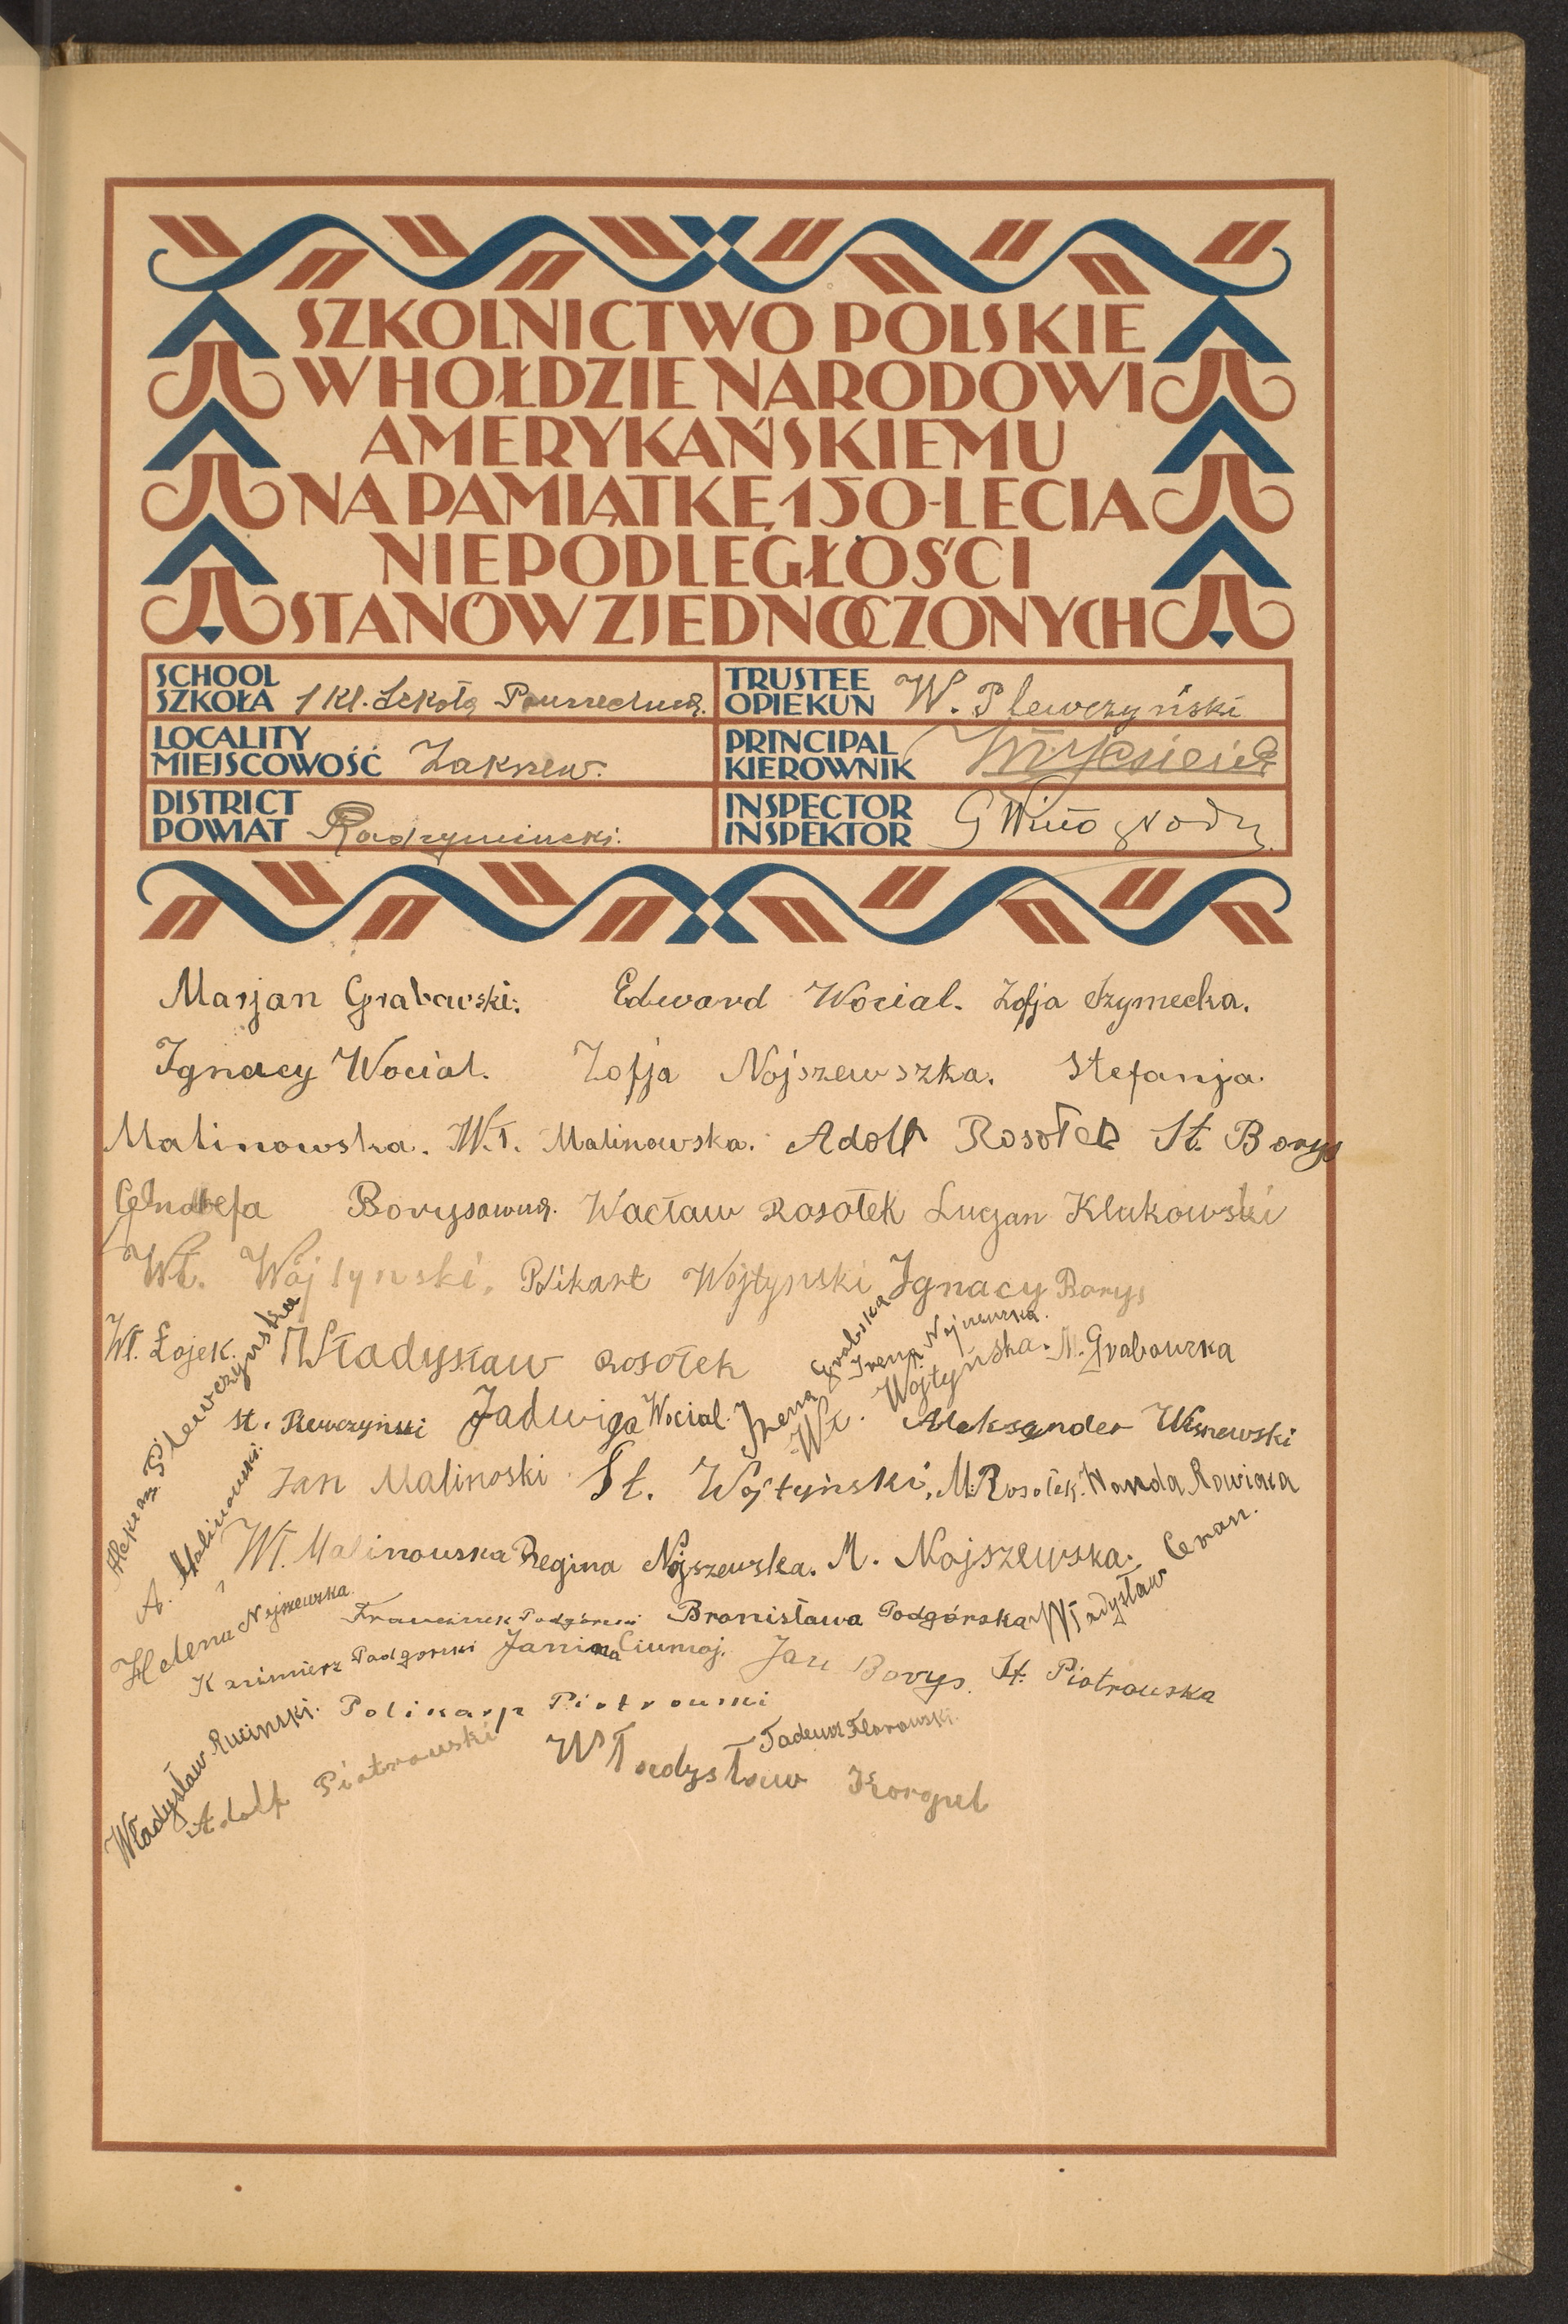 SZKOLNICTWO POLSKIE
W HOŁDZIE NARODOWI
AMERYKAŃSKIEMU
NA PAMIĄTKĘ 150-LECIA
NIEPODLEGŁOŚCI
STANÓW ZJEDNOCZONYCH
SCHOOL
SZKOŁA 1 kl. Szkoła Powszechna.
LOCALITY
MIEJSCOWOŚĆ Zakrzew.
DISTRICT
POWIAT Radzymiński.
TRUSTEE
OPIEKUN W. Plewczyński
PRINCIPAL
KIEROWNIK
INSPECTOR
INSPEKTOR
Marjan Grabowski. Edward Wocial. Zofja Szymecka.
Ignacy Wocial. Zofja Nojszewszka. Stefanja.
Malinowska. Wł. Malinowska. Adolf Rosołek St. Borys
Borysówna. Wacław Rosołek Lucjan Klukowski
Wł. Wojtynski. Wojtynski Ignacy Borys
Wł. Łojek. Władysław Rosołek
Irena Grabska
Irena Nojszewska.
Wł. Wojtyńska. M. Grabowska
Plewczynska
St. Plewczyński Jadwiga Wocial. Aleksander Wisnewski
A. Malinowski.
Jan Malinoski St. Wojtyński. M. Rosołek. Wanda Rawicka
Wł. Malinowska Regina Nojszewska. M. Nojszewska.
Helena Nojszewska
Franciszek Podgórski Bronisława Podgórska Władysław Ceran.
Kazimierz Podgorski Janina Jan Borys. St. Piotrowska
Władysław Rucinski. Polikarp Piotrowski
Adolf Piotrowski Tadeusz Florowski.
Władysław Korgul